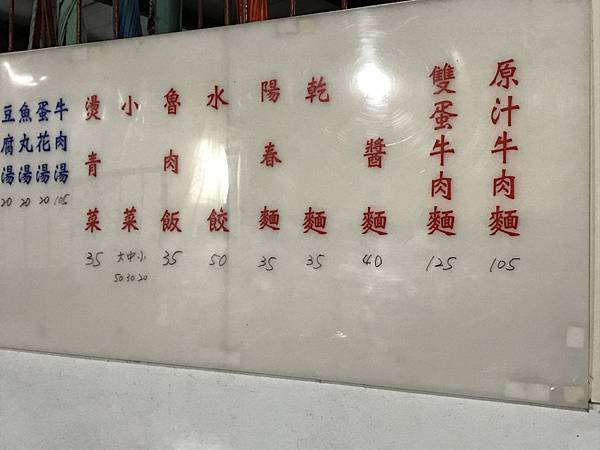 原汁牛肉麵 105
雙蛋牛肉麵 125
醬麵 40
乾麵 35
陽春麵 35
水餃 50
魯肉飯 35
小菜 大中小 50 30 20
燙青菜 35
牛肉湯 105
蛋花湯 20
魚丸湯 20
豆腐湯 20